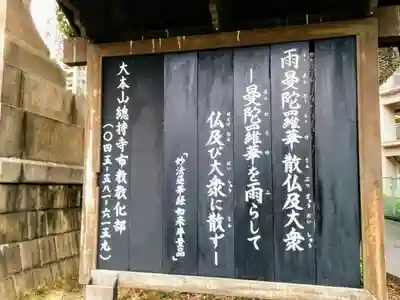 雨曼陀羅華 散仏及大衆
―曼陀羅華を雨らして
仏及び大衆に散ず―
『妙法蓮華経如来寿量品』
大本山總持寺布教教化部
(〇四五-五八一-六一五九)